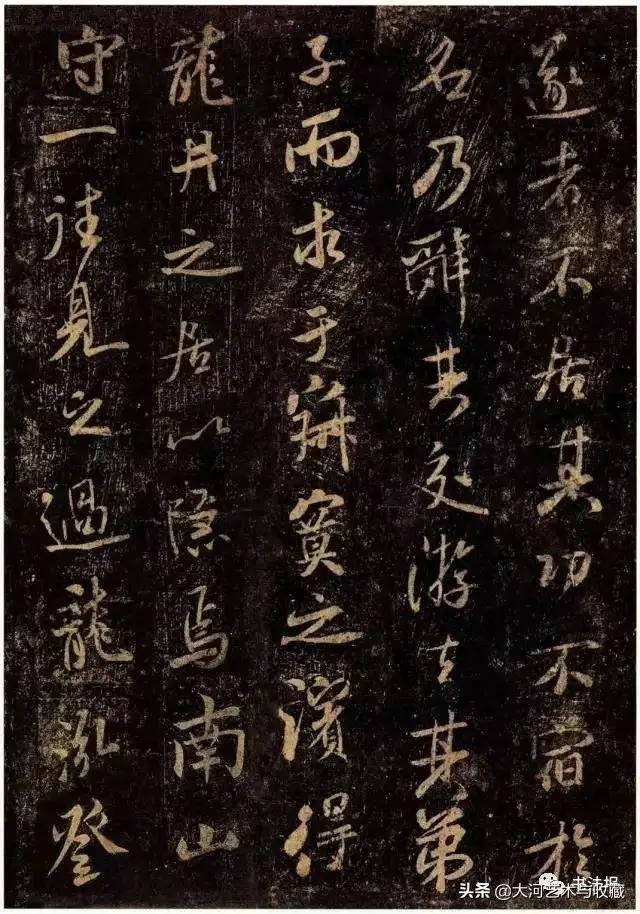 遂者不居其功不宿於
名乃辭其交游去其弟
子而求于寂寞之濱得
龍井之居以隱焉南山
守一往見之過龍泓登
书法报
头条 @大河艺术与收藏